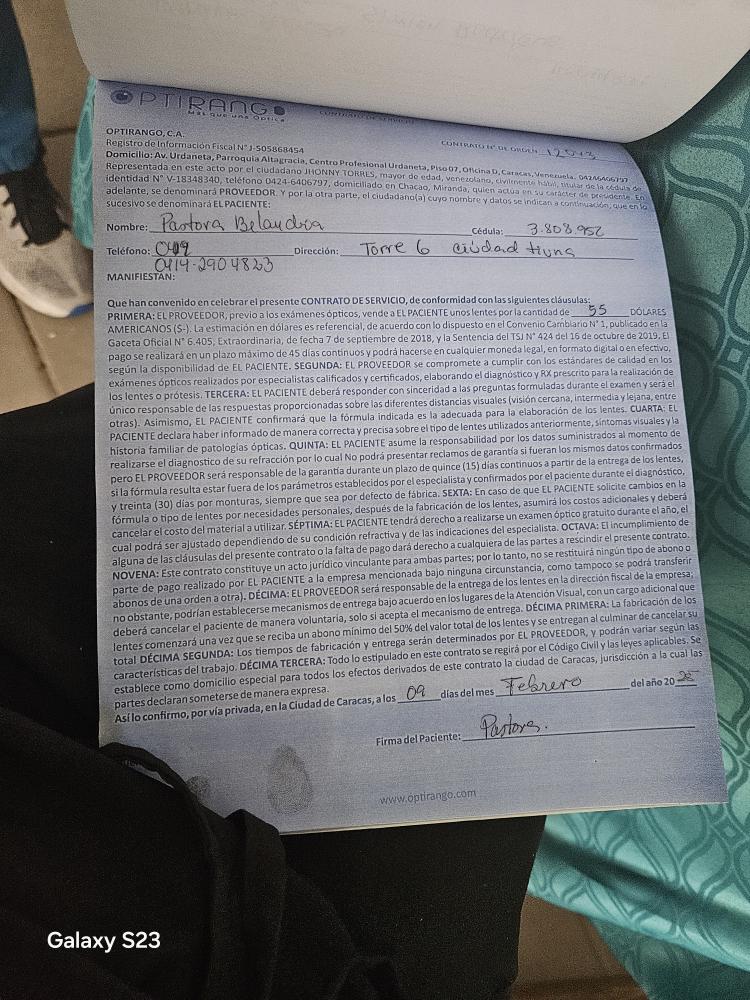 OPTIRANGO
Más que una Óptica
CONTRATO DE SERVICIO
CONTRATO N° DE ORDEN
OPTIRANGO, C.A.
Registro de Información Fiscal N° J-505868454
Domicilio: Av. Urdaneta, Parroquia Altagracia, Centro Profesional Urdaneta, Piso 07, Oficina D, Caracas, Venezuela. 04246406797
Representada en este acto por el ciudadano JHONNY TORRES, mayor de edad, venezolano, civilmente hábil, titular de la cédula de
identidad N° V-18348340, teléfono 0424-6406797, domiciliado en Chacao, Miranda, quien actúa en su carácter de presidente. En
adelante, se denominará PROVEEDOR. Y por la otra parte, el ciudadano(a) cuyo nombre y datos se indican a continuación, que en lo
sucesivo se denominará EL PACIENTE:
Nombre: Pastora Belandria Cédula: 3.808.952
Teléfono: Dirección: Torre 6 ciudad
0414-2904823
MANIFIESTAN:
Que han convenido en celebrar el presente CONTRATO DE SERVICIO, de conformidad con las siguientes cláusulas:
PRIMERA: EL PROVEEDOR, previo a los exámenes ópticos, vende a EL PACIENTE unos lentes por la cantidad de 55 DÓLARES
AMERICANOS ($-). La estimación en dólares es referencial, de acuerdo con lo dispuesto en el Convenio Cambiario N° 1, publicado en la
Gaceta Oficial N° 6.405, Extraordinaria, de fecha 7 de septiembre de 2018, y la Sentencia del TSJ N° 424 del 16 de octubre de 2019. El
pago se realizará en un plazo máximo de 45 días continuos y podrá hacerse en cualquier moneda legal, en formato digital o en efectivo,
según la disponibilidad de EL PACIENTE. SEGUNDA: EL PROVEEDOR se compromete a cumplir con los estándares de calidad en los
exámenes ópticos realizados por especialistas calificados y certificados, elaborando el diagnóstico y RX prescrito para la realización de
los lentes o prótesis. TERCERA: EL PACIENTE deberá responder con sinceridad a las preguntas formuladas durante el examen y será el
único responsable de las respuestas proporcionadas sobre las diferentes distancias visuales (visión cercana, intermedia y lejana, entre
otras). Asimismo, EL PACIENTE confirmará que la fórmula indicada es la adecuada para la elaboración de los lentes. CUARTA: EL
PACIENTE declara haber informado de manera correcta y precisa sobre el tipo de lentes utilizados anteriormente, síntomas visuales y la
historia familiar de patologías ópticas. QUINTA: EL PACIENTE asume la responsabilidad por los datos suministrados al momento de
realizarse el diagnostico de su refracción por lo cual No podrá presentar reclamos de garantía si fueran los mismos datos confirmados
pero EL PROVEEDOR será responsable de la garantía durante un plazo de quince (15) días continuos a partir de la entrega de los lentes,
si la fórmula resulta estar fuera de los parámetros establecidos por el especialista y confirmados por el paciente durante el diagnóstico,
y treinta (30) días por monturas, siempre que sea por defecto de fábrica. SEXTA: En caso de que EL PACIENTE solicite cambios en la
fórmula o tipo de lentes por necesidades personales, después de la fabricación de los lentes, asumirá los costos adicionales y deberá
cancelar el costo del material a utilizar. SÉPTIMA: EL PACIENTE tendrá derecho a realizarse un examen óptico gratuito durante el año, el
cual podrá ser ajustado dependiendo de su condición refractiva y de las indicaciones del especialista. OCTAVA: El incumplimiento de
alguna de las cláusulas del presente contrato o la falta de pago dará derecho a cualquiera de las partes a rescindir el presente contrato.
NOVENA: Este contrato constituye un acto jurídico vinculante para ambas partes; por lo tanto, no se restituirá ningún tipo de abono o
parte de pago realizado por EL PACIENTE a la empresa mencionada bajo ninguna circunstancia, como tampoco se podrá transferir
abonos de una orden a otra). DÉCIMA: EL PROVEEDOR será responsable de la entrega de los lentes en la dirección fiscal de la empresa;
no obstante, podrían establecerse mecanismos de entrega bajo acuerdo en los lugares de la Atención Visual, con un cargo adicional que
deberá cancelar el paciente de manera voluntaria, solo si acepta el mecanismo de entrega. DÉCIMA PRIMERA: La fabricación de los
lentes comenzará una vez que se reciba un abono mínimo del 50% del valor total de los lentes y se entregan al culminar de cancelar su
total DÉCIMA SEGUNDA: Los tiempos de fabricación y entrega serán determinados por EL PROVEEDOR, y podrán variar según las
características del trabajo. DÉCIMA TERCERA: Todo lo estipulado en este contrato se regirá por el Código Civil y las leyes aplicables. Se
establece como domicilio especial para todos los efectos derivados de este contrato la ciudad de Caracas, jurisdicción a la cual las
partes declaran someterse de manera expresa.
Así lo confirmo, por vía privada, en la Ciudad de Caracas, a los 09 días del mes Febrero del año 20
Firma del Paciente: Pastora.
www.optirango.com
Galaxy S23